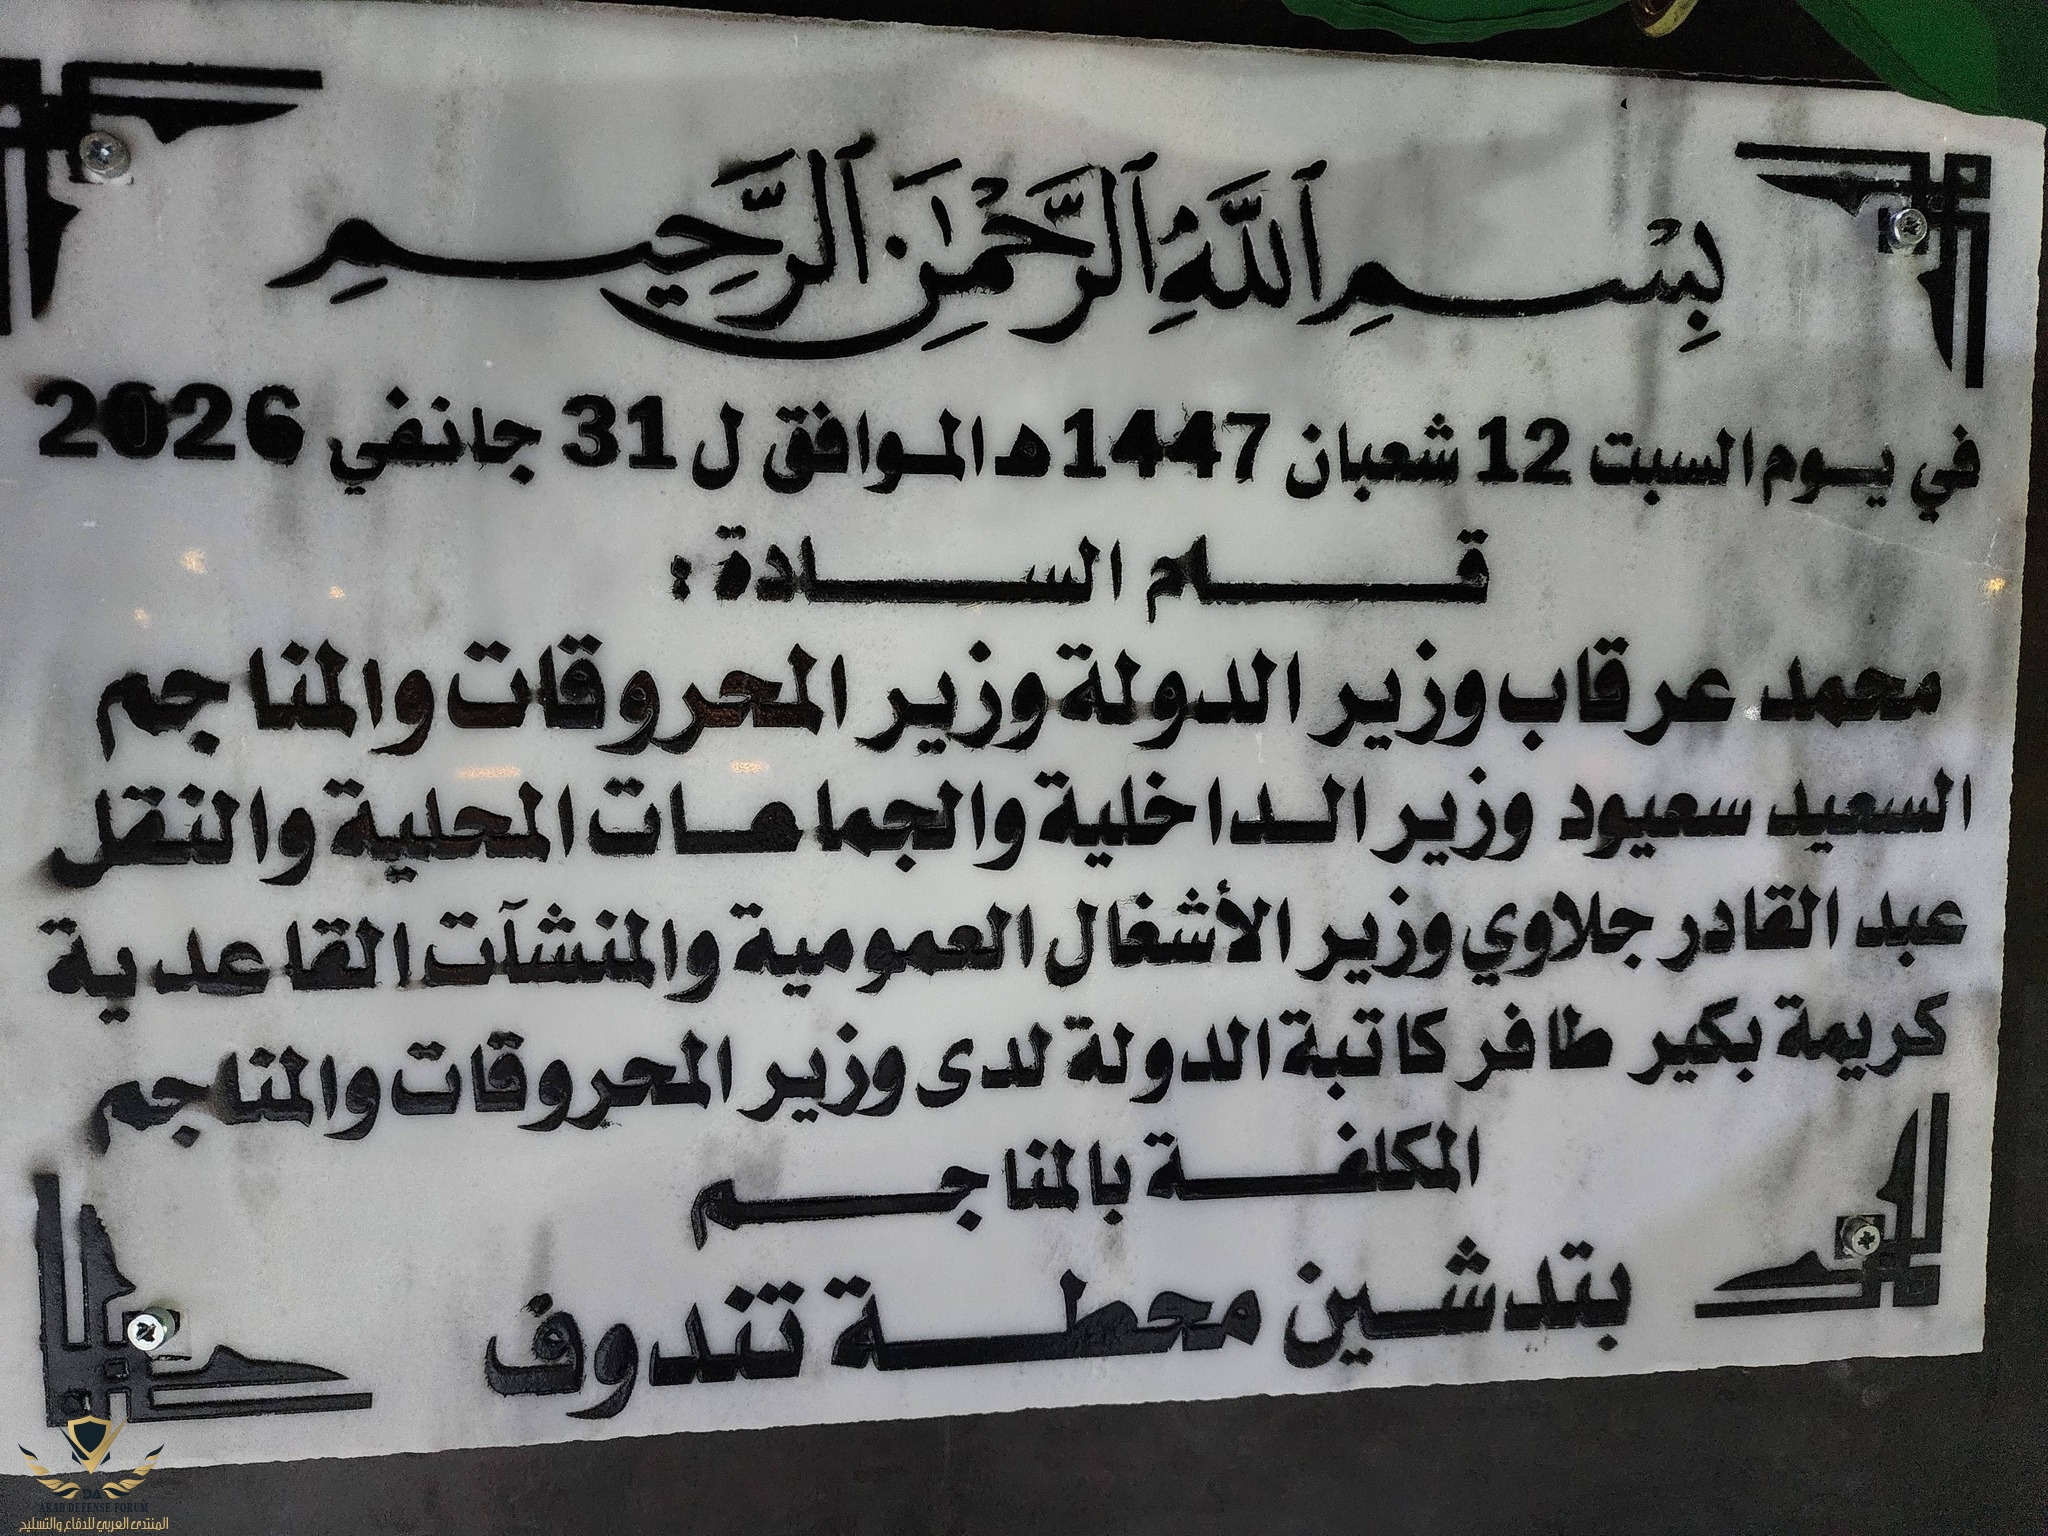 بِسْمِ ٱللَّهِ ٱلرَّحْمَـٰنِ ٱلرَّحِيمِ
في يوم السبت 12 شعبان 1447هـ الموافق ل 31 جانفي 2026
قام السادة :
محمد عرقاب وزير الدولة وزير المحروقات والمناجم
السعيد سعيود وزير الداخلية والجماعات المحلية والنقل
عبد القادر جلاوي وزير الأشغال العمومية والمنشآت القاعدية
كريمة بكير طافر كاتبة الدولة لدى وزير المحروقات والمناجم
المكلفة بالمناجم
بتدشين محطة تندوف
DA
ARAB DEFENSE FORUM
المنتدى العربي للدفاع والتسليح